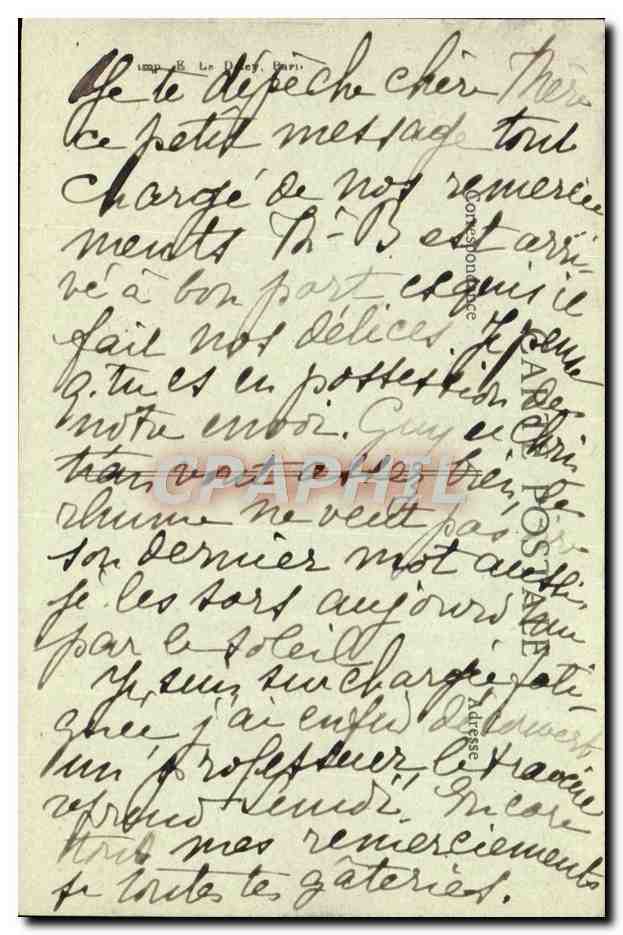 Imp. E. Le Deley, Paris
Je te dépêche chère Thérè
ce petit message tout
chargé de nos remercie
ments Th-B est arri-
vé à bon port et qui
fait nos délices. Je pense
q. tu es en possession de
notre envoi. Guy et Chris
tian vont assez bien, le
rhume ne veut pas dire
son dernier mot aussi
je les sors aujourd'hui
par le soleil
Je suis surchargée fati-
guée, j'ai enfin découvert
un professeur, le travail
reprend lundi, Encore
tous mes remerciements
de toutes tes gâteries.
Correspondance
CARTE POSTALE
Adresse
CPAPHIL